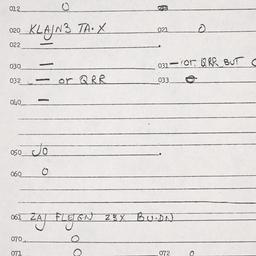 012 O
020 KLAJN3 TA.X 021 O
022 —
030 — 031 — or QRR BUT
032 — or QRR 033
040 —
050 JO
060 O
061 ZAJ FLEJGN ZEX BU.DN
070 O
071 O 072 O